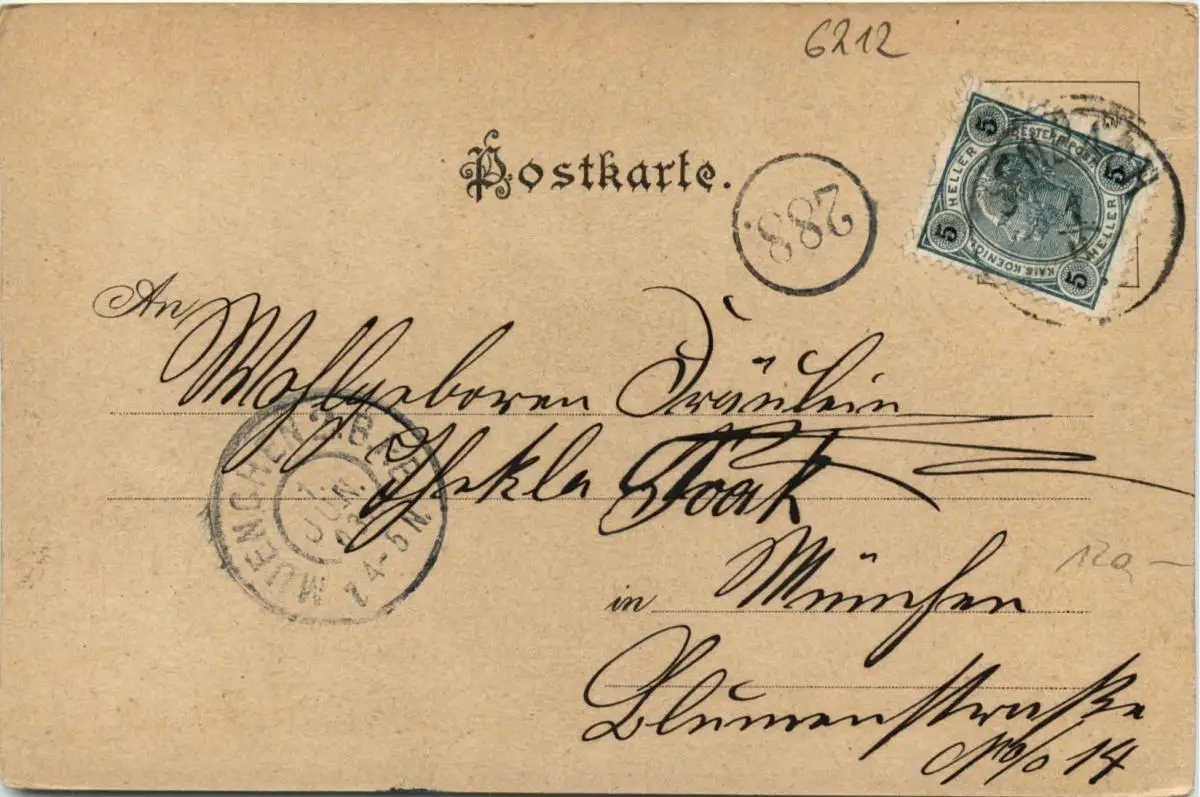 6212
Postkarte.
288.
5 5 5 5
OESTERR. POST
HELLER HELLER
KAIS. KOENIGL.
An Wohlgeboren Fräulein
Thekla
MUENCHEN 2. B.Z.
1.
JUN.
03
4-5 N.
in München
120,-
Blumenstraße
No 14